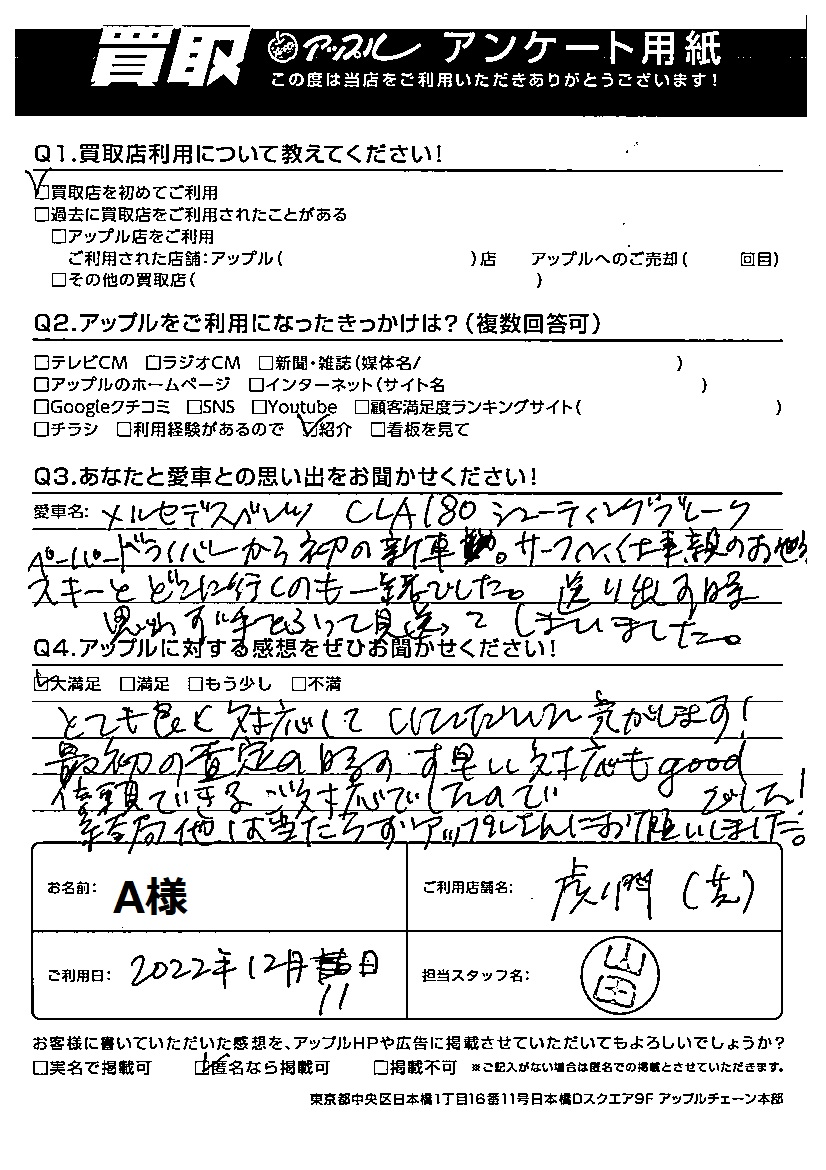 買取 アップル アンケート用紙
この度は当店をご利用いただきありがとうございます!
Q1.買取店利用について教えてください!
☑買取店を初めてご利用
□過去に買取店をご利用されたことがある
□アップル店をご利用
ご利用された店舗:アップル( )店 アップルへのご売却( 回目)
□その他の買取店( )
Q2.アップルをご利用になったきっかけは?(複数回答可)
□テレビCM □ラジオCM □新聞・雑誌(媒体名/ )
□アップルのホームページ □インターネット(サイト名 )
□Googleクチコミ □SNS □Youtube □顧客満足度ランキングサイト( )
□チラシ □利用経験があるので ☑紹介 □看板を見て
Q3.あなたと愛車との思い出をお聞かせください!
愛車名: メルセデスベンツ CLA180 シューティングブレーク
ペーパードライバーから初の新車。サーフィン、仕事、親のお
スキーとどこに行くのも一緒でした。送り出す時
思わず手をふって見送ってしまいました。
Q4.アップルに対する感想をぜひお聞かせください!
☑大満足 □満足 □もう少し □不満
とても良く対応していただいた気がします!
最初の査定の時のす早い対応もgood
信頼できるご対応でしたので でした!
結局他は当たらずアップルさんにお願いしました。
お名前: A様 ご利用店舗名: 虎ノ門(芝)
ご利用日: 2022年12月11日 担当スタッフ名: 山田
お客様に書いていただいた感想を、アップルHPや広告に掲載させていただいてもよろしいでしょうか?
□実名で掲載可 ☑匿名なら掲載可 □掲載不可 ※ご記入がない場合は匿名での掲載とさせていただきます。
東京都中央区日本橋1丁目16番11号日本橋Dスクエア9F アップルチェーン本部